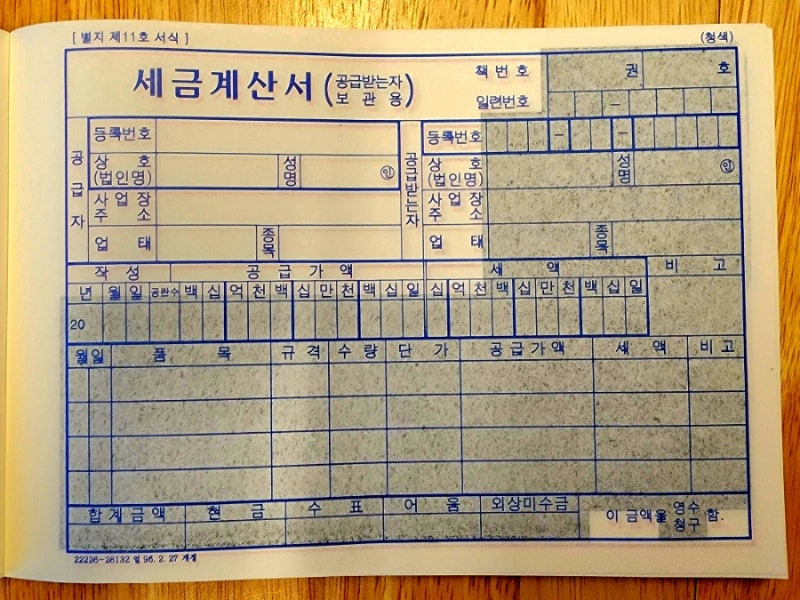 [ 별지 제11호 서식 ] (청색)
세금계산서 (공급받는자 보관용) 책 번 호 권 호
일련번호 –
공급자 등록번호 공급받는자 등록번호 – –
상 호 (법인명) 성명 인 상 호 (법인명) 성명 인
사업장 주소 사업장 주소
업 태 종목 업 태 종목
작 성 공 급 가 액 세 액 비 고
년 월 일 공란수 백 십 억 천 백 십 만 천 백 십 일 십 억 천 백 십 만 천 백 십 일
20
월 일 품 목 규 격 수 량 단 가 공 급 가 액 세 액 비 고
합 계 금 액 현 금 수 표 어 음 외상미수금 이 금액을 영수 청구 함.
22226-28132 일 96. 2. 27 개정